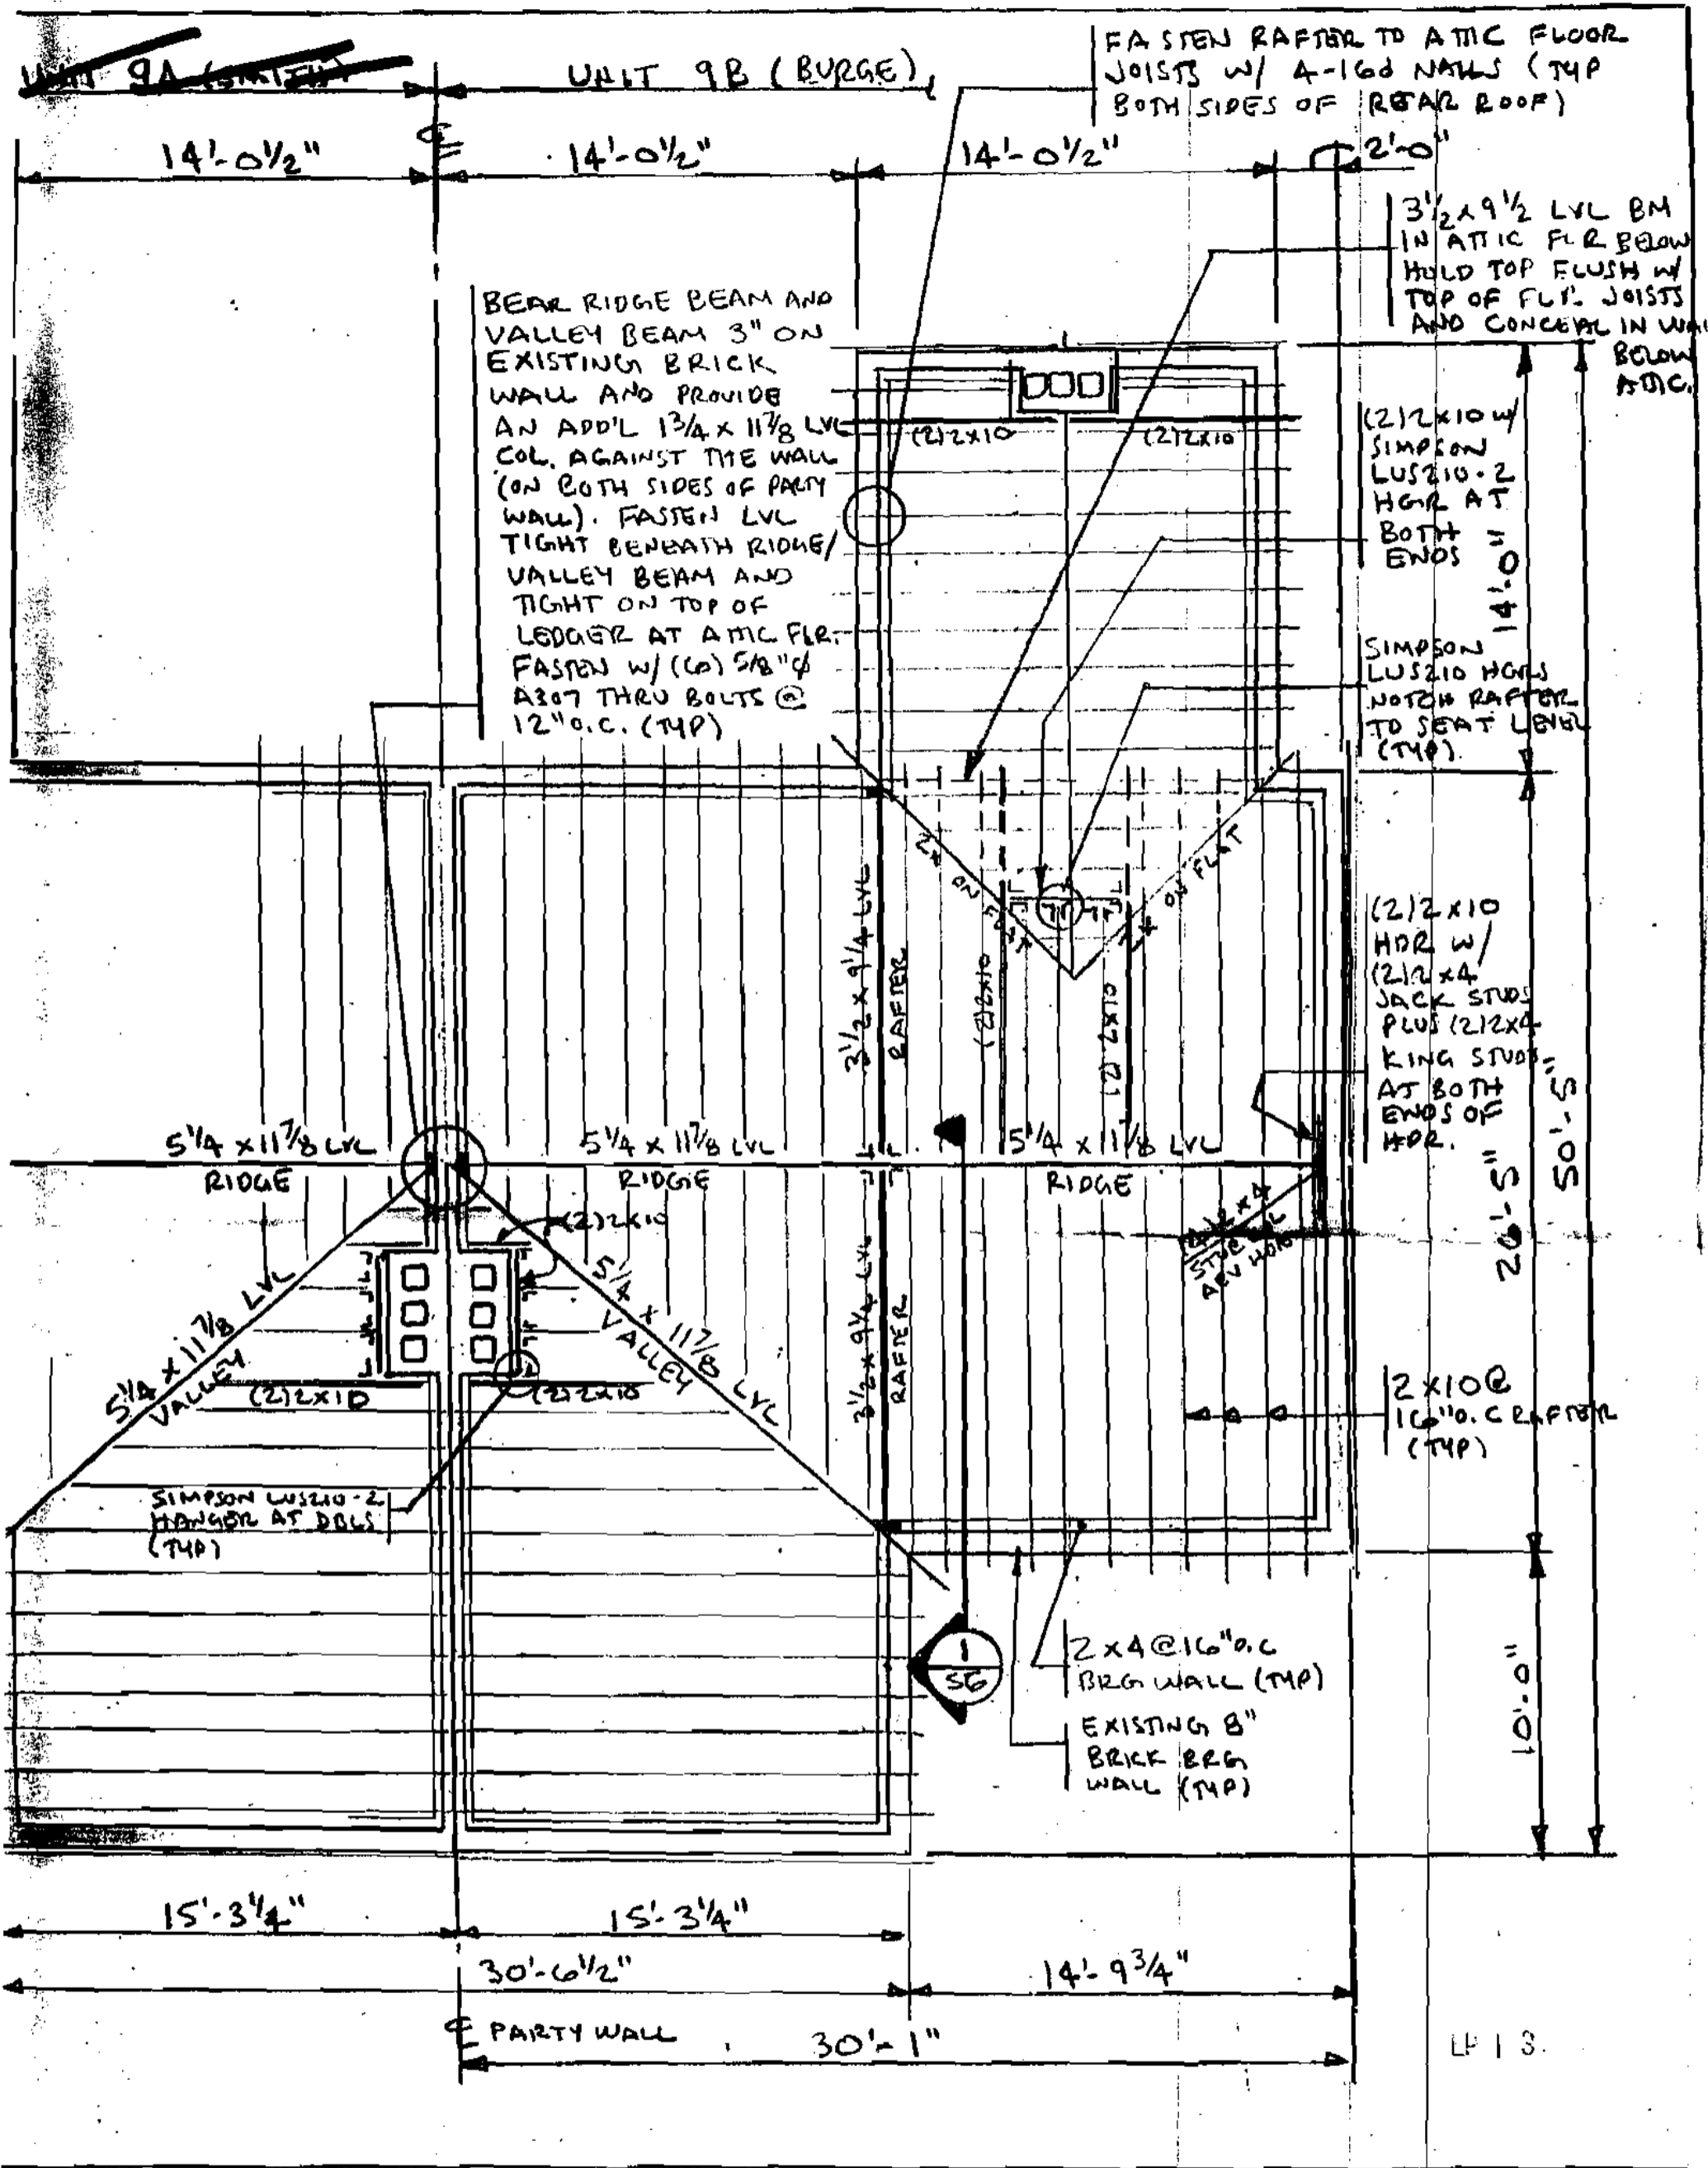 UNIT 9A (SMITH)
UNIT 9B (BURGE)
FASTEN RAFTER TO ATTIC FLOOR
JOISTS W/ 4-16d NAILS (TYP
BOTH SIDES OF REAR ROOF)
14'-0 1/2"
14'-0 1/2"
14'-0 1/2"
2'-0"
3 1/2 x 9 1/2 LVL BM
IN ATTIC FLR BELOW
HOLD TOP FLUSH W/
TOP OF FLR JOISTS
AND CONCEAL IN WALL
BELOW
ATTIC.
BEAR RIDGE BEAM AND
VALLEY BEAM 3" ON
EXISTING BRICK
WALL AND PROVIDE
AN ADD'L 1 3/4 x 11 7/8 LVL
COL. AGAINST THE WALL
(ON BOTH SIDES OF PARTY
WALL). FASTEN LVL
TIGHT BENEATH RIDGE/
VALLEY BEAM AND
TIGHT ON TOP OF
LEDGER AT ATTIC FLR.
FASTEN W/ (6) 5/8"φ
A307 THRU BOLTS @
12" O.C. (TYP)
(2) 2x10
(2) 2x10
(2) 2x10 W/
SIMPSON
LUS210-2
HGR AT
BOTH
ENDS
14'-0"
SIMPSON
LUS210 HGRS
NOTCH RAFTER
TO SEAT LEVEL
(TYP)
2x ON FLAT
2x ON FLAT
3 1/2 x 9 1/4 LVL
RAFTER
(2) 2x10
(2) 2x10
(2) 2x10
HDR W/
(2) 2x4
JACK STUDS
PLUS (2) 2x4
KING STUDS
AT BOTH
ENDS OF
HDR.
26'-5"
50'-5"
5 1/4 x 11 7/8 LVL
RIDGE
5 1/4 x 11 7/8 LVL
RIDGE
5 1/4 x 11 7/8 LVL
RIDGE
(2) 2x10
5 1/4 x 11 7/8 LVL
VALLEY
5 1/4 x 11 7/8 LVL
VALLEY
3 1/2 x 9 1/4 LVL
RAFTER
(2) 2x10
(2) 2x10
2x10 @
16" O.C RAFTER
(TYP)
SIMPSON LUS210-2
HANGER AT DBLS
(TYP)
1
S6
2x4 @ 16" O.C
BRG WALL (TYP)
EXISTING 8"
BRICK BRG
WALL (TYP)
10'-0"
15'-3 1/4"
15'-3 1/4"
30'-6 1/2"
14'-9 3/4"
℄ PARTY WALL
30'-1"